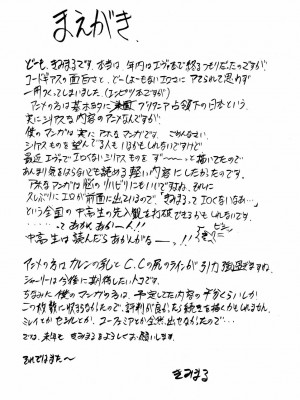 まえがき。
どーも、きみまるです。本当は、年内はエヴァまで終るつもりだったのですが
コードギアスの面白さと、どーしよーもないエロさにアテられて思わず
一冊つくってしまいました。(エンピツ本ですが)
アニメの方は基本的にブリタニア占領下の日本という、
実にシリアスな内容のアニメなんですが、
僕のマンガは実にアホなマンガです。ごめんなさい。
シリアスものを望んでる人もいるかもしれないですけど
最近エヴァでエロくないシリアスものをず〜〜っと描いてたので
あんまり気をはらないでも読める軽い内容にしたかったのです。
アホなマンガは脳のリハビリにもいいですよね、それに
久しぶりにエロが前面に出ているので、「きみまるってエロくないなぁ…」
という全国の中高生の先入観を打破できるかもしれないです。
・・・・・・ってあかんあかーん!!
中高生は読んだらあかんがなー。!!
アニメの方はカレンの乳とC.C.の尻のラインが引力強過ぎますね。
シャーリーは今後に期待したい人です。
ちなみに僕のマンガの方は、予定してた内容の半分くらいしか
この枚数に収まらなかったので、評判が良かったら続きを描くかもしれません。
ミレイとかセシルとか、ユーフェミアとか全然出せなかったので・・・
では、来年もきみまるをよろしくお願いします。
それではまた〜
きみまる